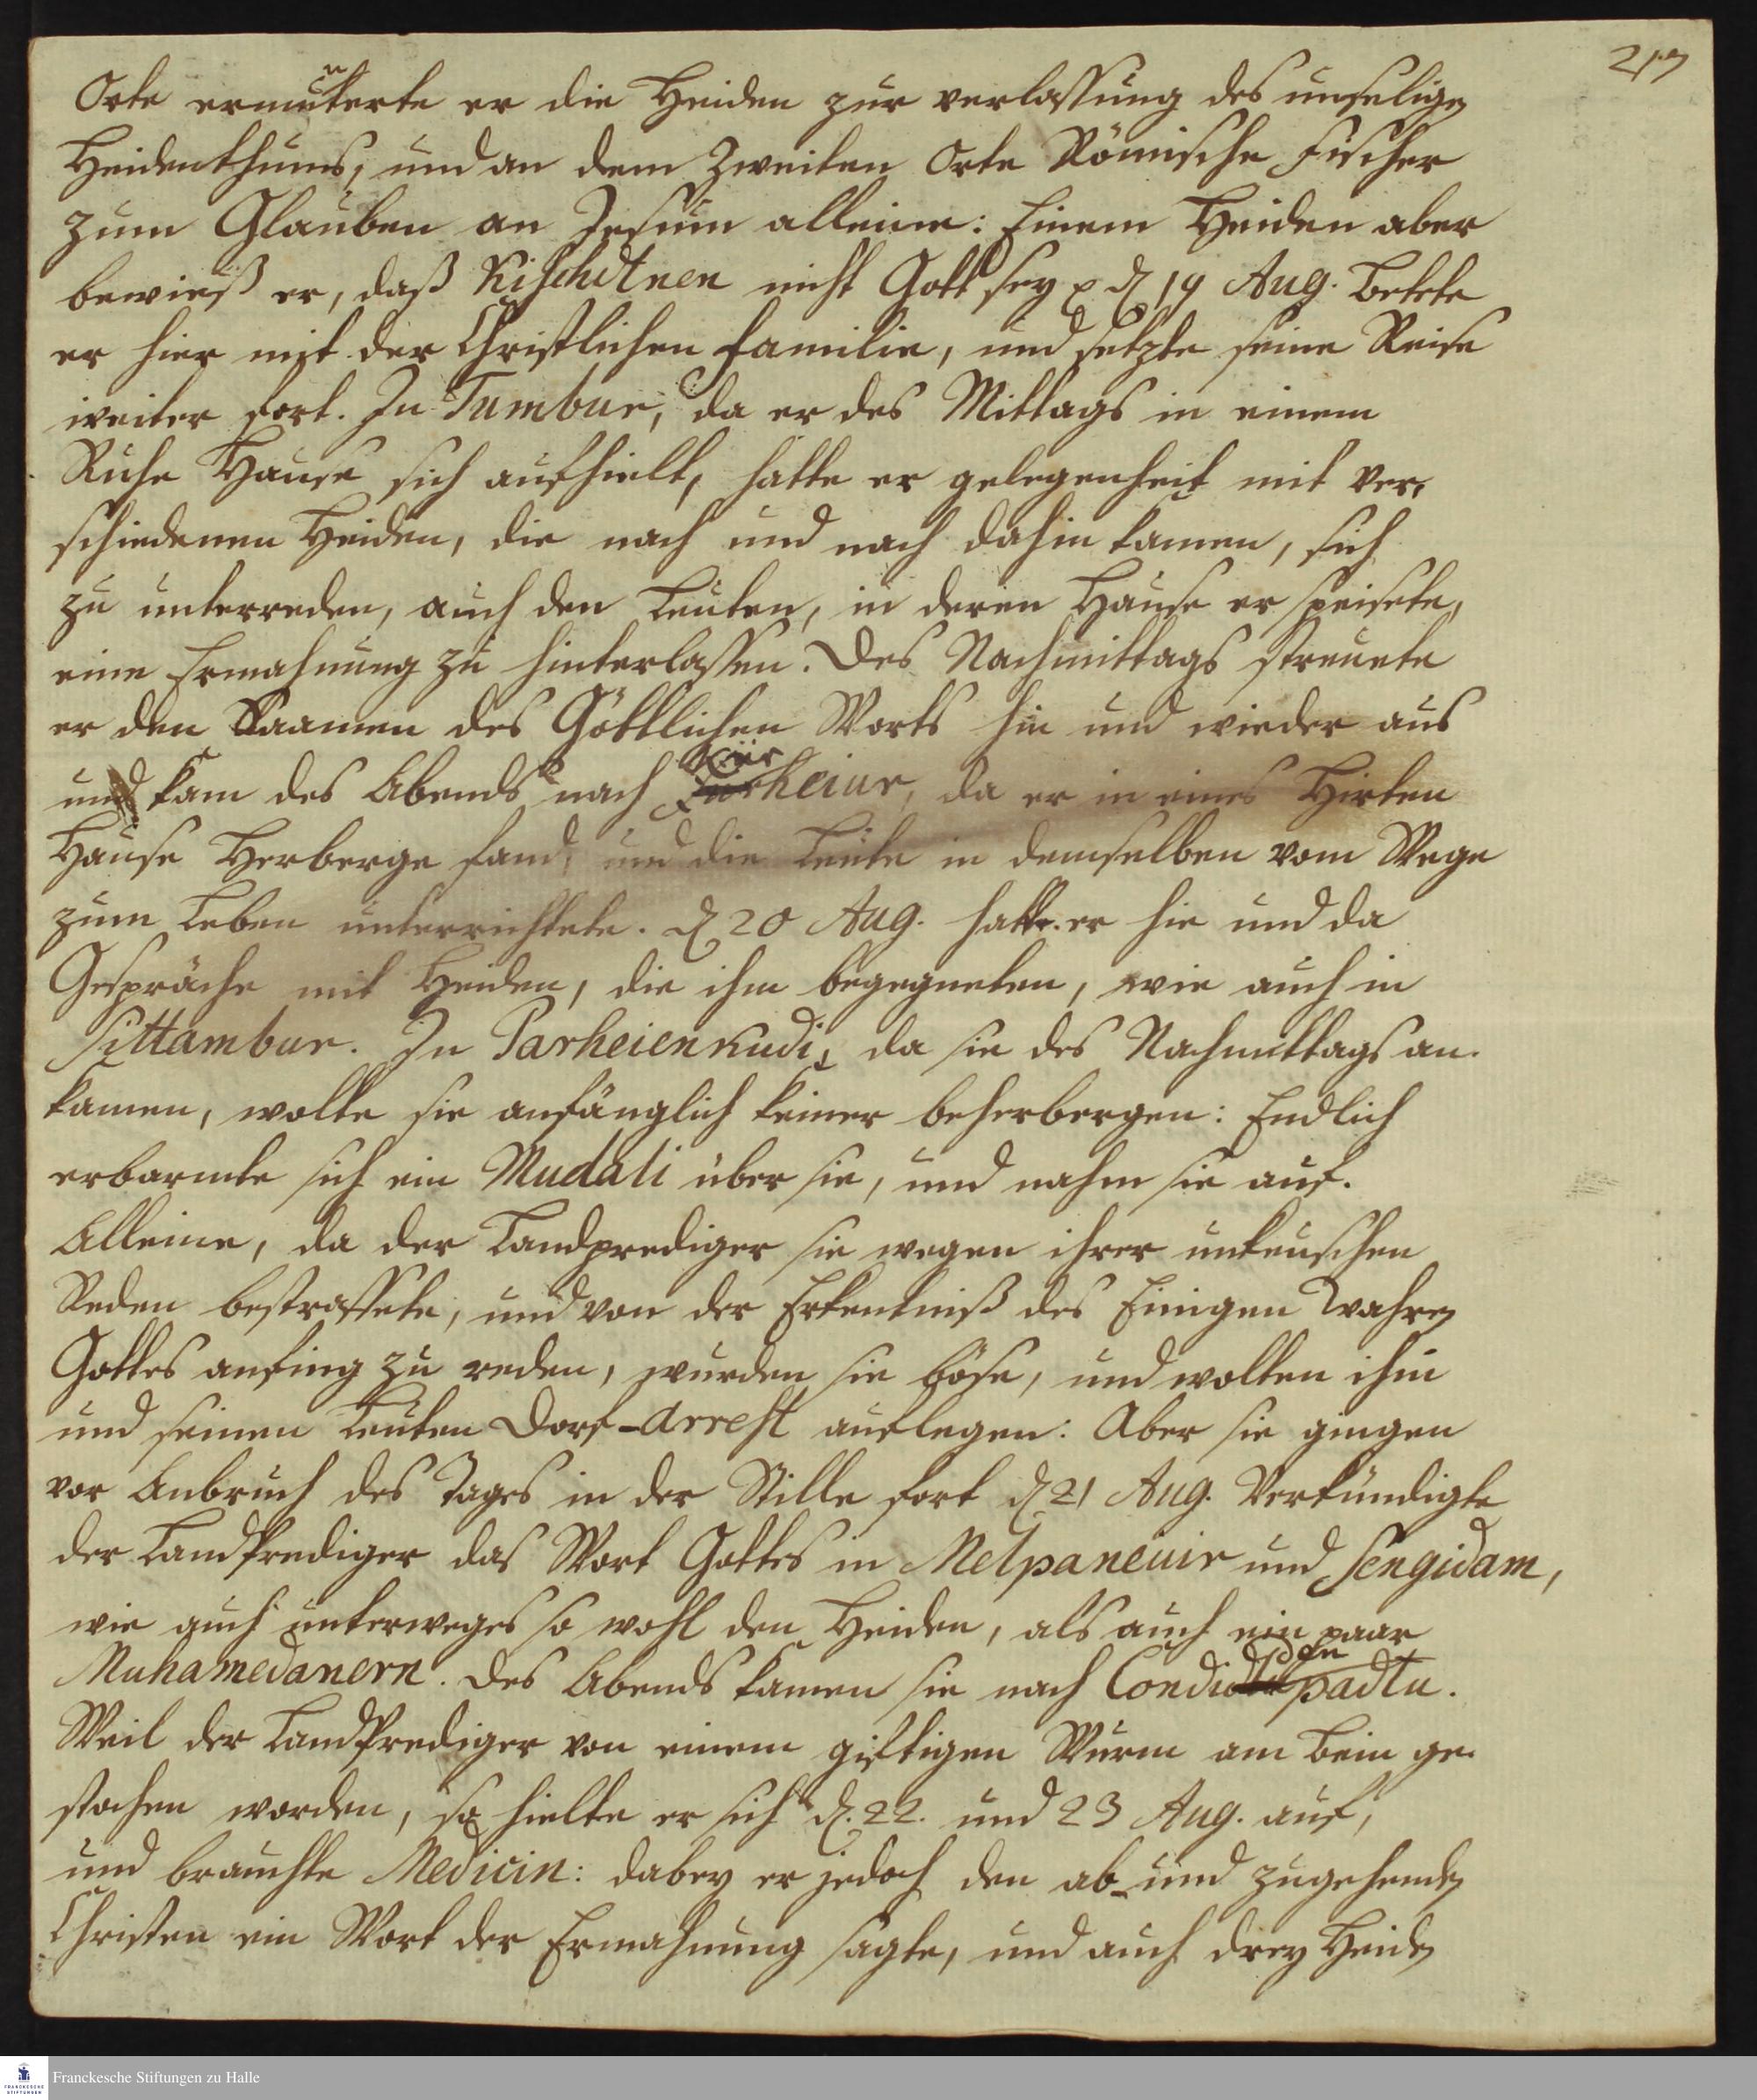 217
Orte ermunterte er die Heiden zur verlassung des unseligen
Heidenthums, und an dem Zweiten Orte Römische Fischer
zum Glauben an Jesum alleine: Einem Heiden aber
bewieß er, daß Kischdtnen nicht Gott sey p d 19 Aug. Betete
er hier mit der Christlichen Familie, und setzte seine Reise
weiter fort. In Tumbur, da er des Mittags in einem
Ruhe Hause sich aufhielt, hatte er gelegenheit mit ver,
schiedenen Heiden, die nach und nach dahin kamen, sich
zu unterreden, auch den Leuten, in deren Hause er speisete,
eine Ermahnung zu hinterlassen. Des Nachmittags streuete
er den Saamen des Göttlichen Worts hin und wieder aus
und kam des Abends nach heiur, da er in eines Hirten
Hause Herberge fand, und die Leute in demselben vom Wege
zum Leben unterrichtete. d 20 Aug. hatte er hie und da
Gespräche mit Heiden, die ihm begegneten, wie auch in
Sittambur. In Parheienkudi, da sie des Nachmittags an-
kamen, wolte sie anfänglich keiner beherbergen: Endlich
erbarmte sich ein Mudali über sie, und nahm sie auf.
Alleine, da der Landprediger sie wegen ihrer unkeuschen
Reden bestraffete, und von der Erkentniß des Einigen wahren
Gottes anfing zu reden, wurden sie böse, und wolten ihm
und seinen Leuten Dorf-Arrest auflegen: Aber sie gingen
vor Anbruch des Tages in der Stille fort d 21 Aug. Verkündigte
der LandPrediger das Wort Gottes in Melpaneiur und Sengidam,
wie auch unterweges so wohl den Heiden, als auch ein paar
Muhamedanern. Des Abends kamen sie nach
Weil der LandPrediger von einem giftigen Wurm am Bein ge-
stochen worden, so hielte er sich d. 22. und 23 Aug. auf,
und brauchte Medicin: dabey er jedoch den ab- und zugehenden
Christen ein Wort der Ermahnung sagte, und auch drey Heiden
Franckesche Stiftungen zu Halle
FRANCKESCHE
STIFTUNGEN